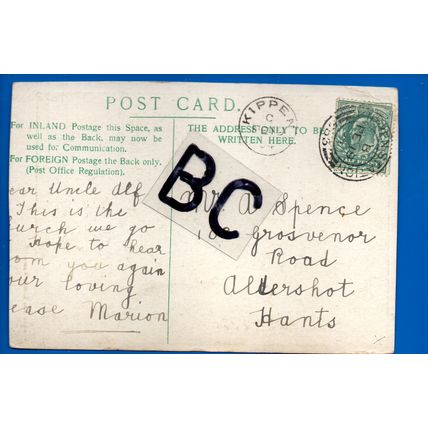 POST CARD.
For INLAND Postage this Space, as
well as the Back, may now be
used for Communication.
For FOREIGN Postage the Back only.
(Post Office Regulation).
THE ADDRESS ONLY TO BE
WRITTEN HERE.
KIPPEN
C
BC
ear Uncle Alf
This is the
urch we go
Hope to hear
om you again
our loving
Marion
Mr A Spence
Grosvenor
Road
Aldershot
Hants